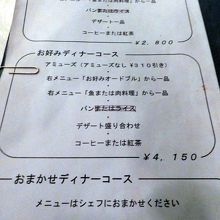 右メニュー「魚または肉料理」から一品
パンまたはライス
デザート一品
コーヒーまたは紅茶
¥2,800
お好みディナーコース
アミューズ(アミューズなし ¥310引き)
右メニュー「お好みオードブル」から一品
右メニュー「魚または肉料理」から一品
パンまたはライス
デザート盛り合わせ
コーヒーまたは紅茶
¥4,150
おまかせディナーコース
メニューはシェフにおまかせください